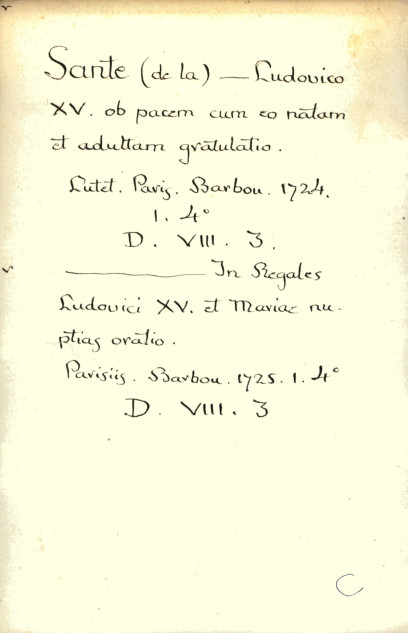 Sante (de la) — Ludovico
XV. ob pacem cum eo natam
et adultam gratulatio.
Lutet. Paris. Barbou. 1724.
1. 4°
D. VIII. 3.
——— In Regales
Ludovici XV. et Mariae nu-
ptias oratio.
Parisiis. Barbou. 1725. 1. 4°
D. VIII. 3
C